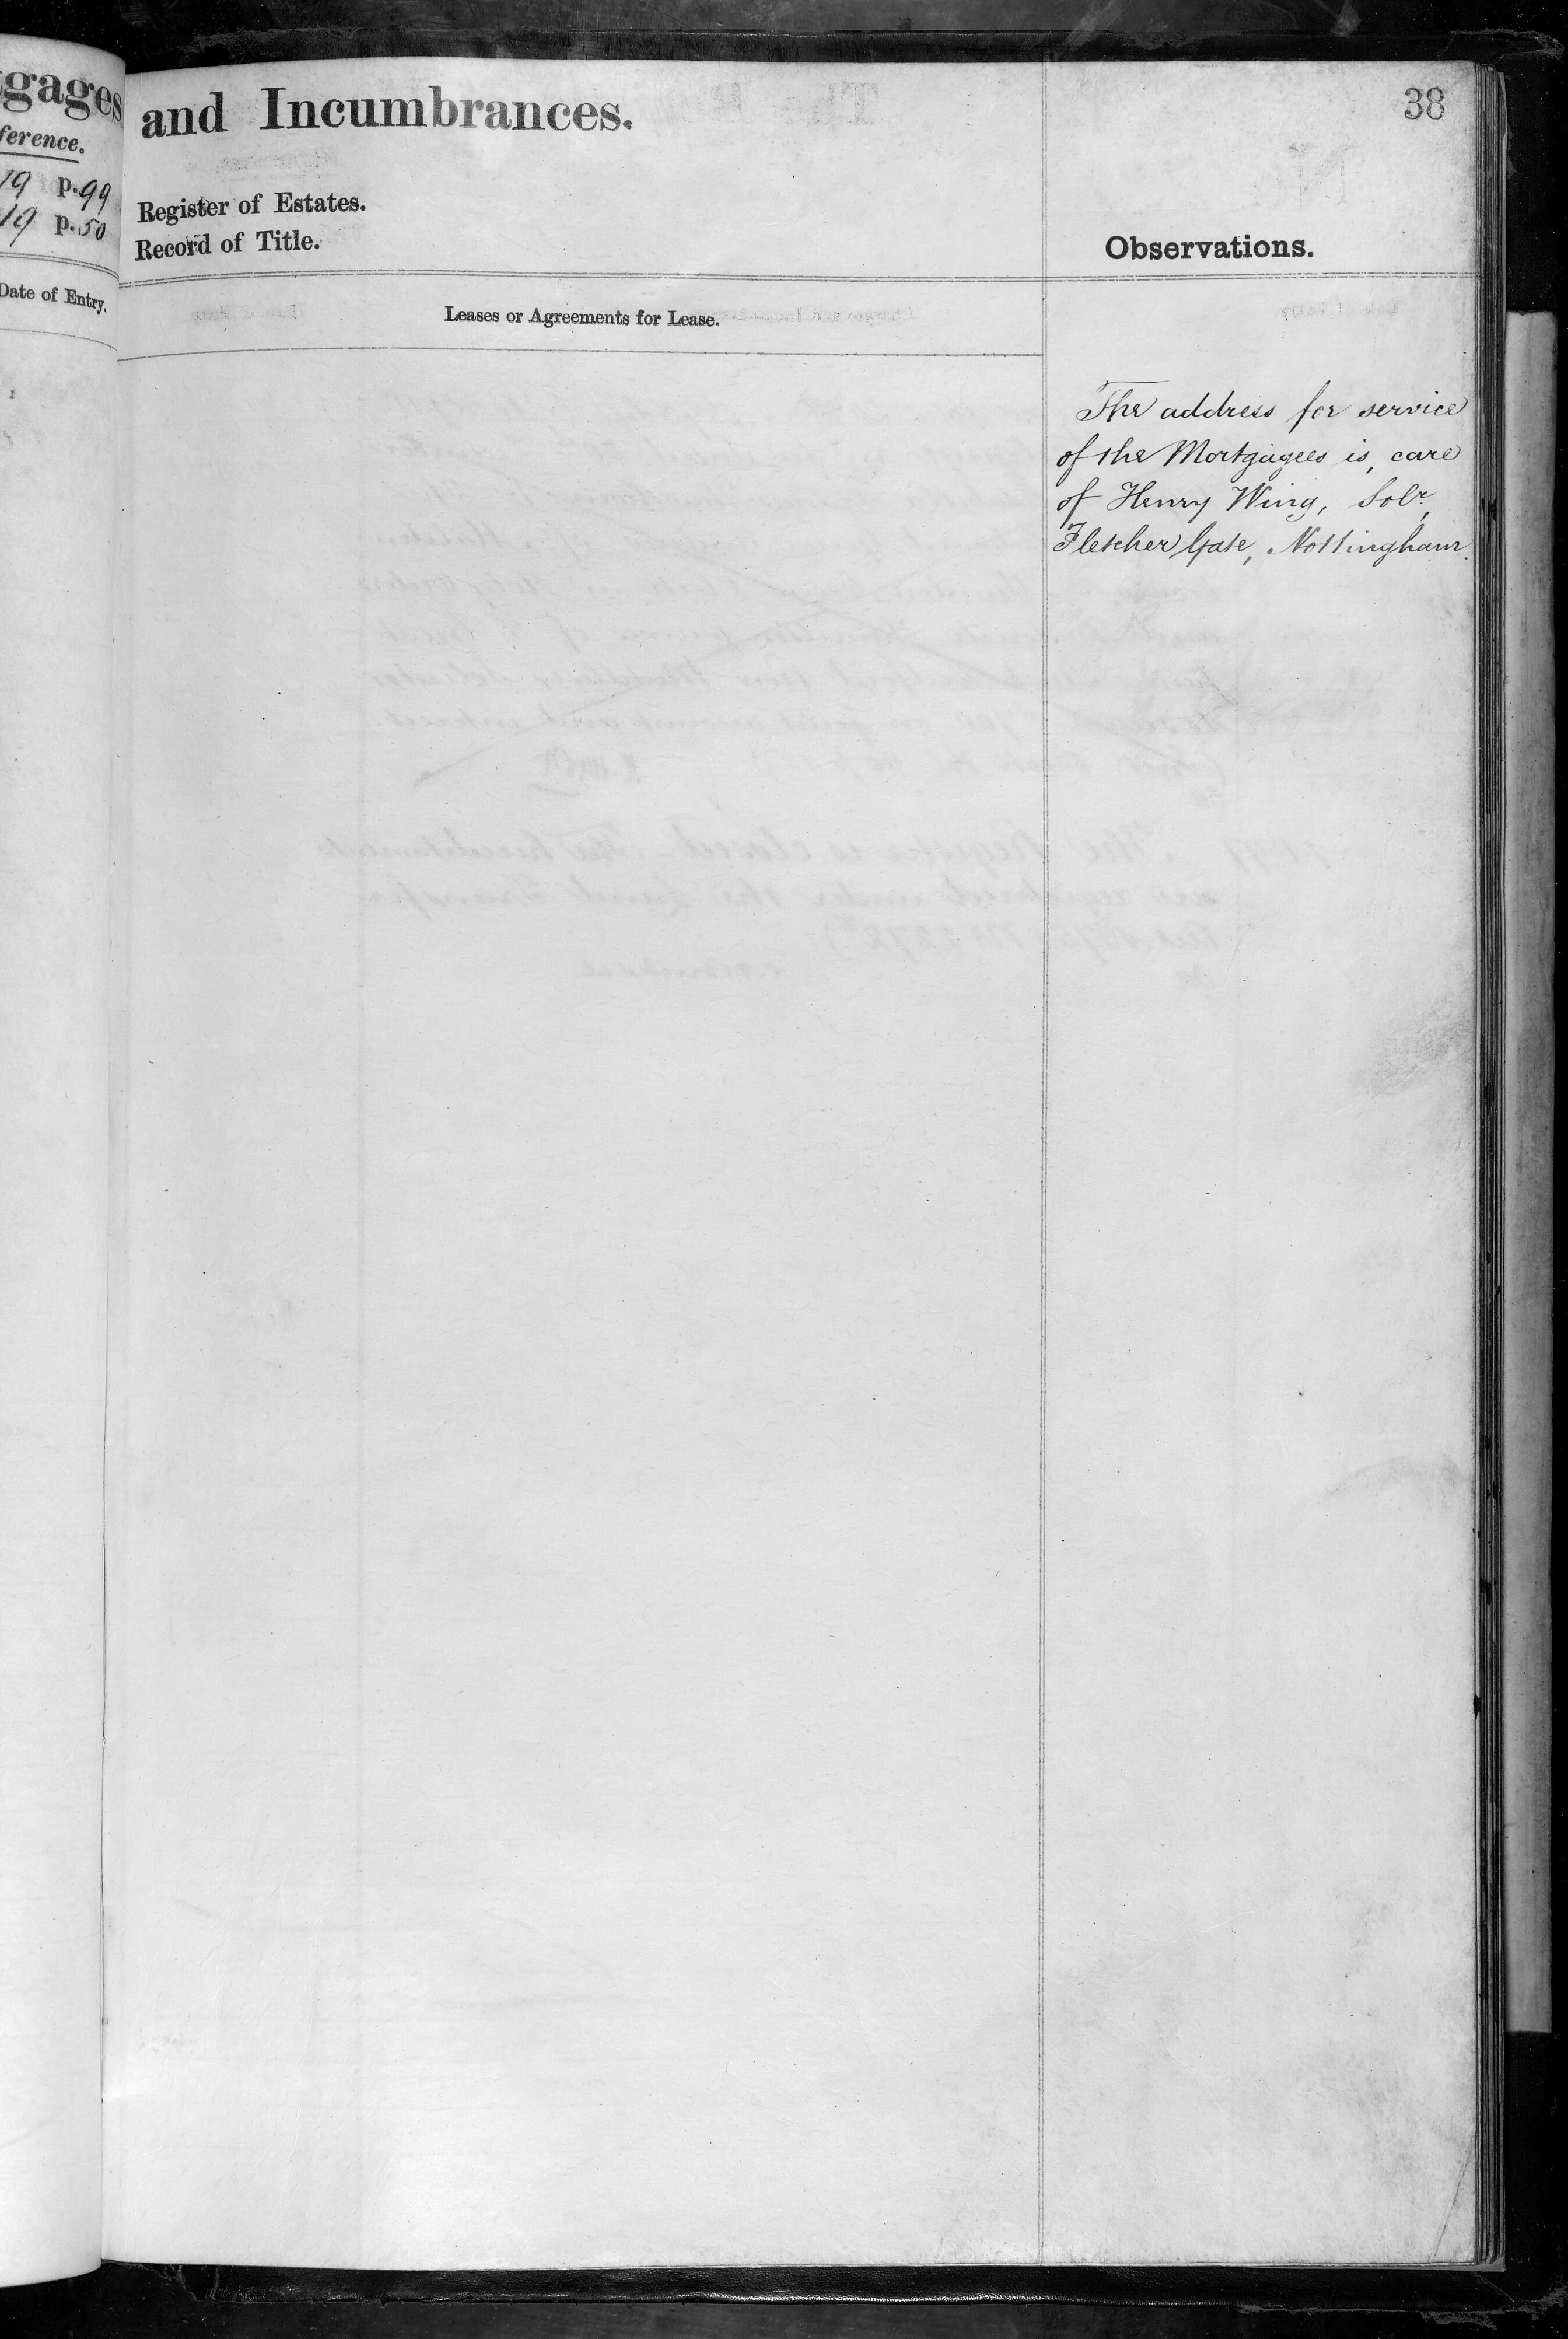 gages
ference.
19 p. 99
19 p. 50
Date of Entry.
and Incumbrances.
38
Register of Estates.
Record of Title.
Observations.
Leases or Agreements for Lease.
The address for service
of the Mortgagees is, care
of Henry Wing, Solr,
Fletcher Gate, Nottingham.